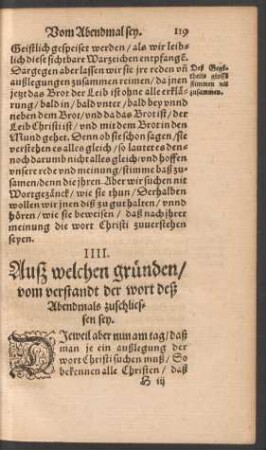 Vom Abendmal sey. 119
Geistlich gespeiset werden / als wir leib-
lich diese sichtbare Warzeichen entpfangē.
Dargegen aber lassen wir sie jre reden vñ
außlegungen zusammen reimen / da jnen
jetzt das Brot der Leib ist ohne alle erklä-
rung / bald in / bald vnter / bald bey vnnd
neben dem Brot / vnd da das Brot ist / der
Leib Christi ist / vnd mit dem Brot in den
Mund gehet. Denn ob sie schon sagen / sie
verstehen es alles gleich / so lautet es den-
noch darumb nicht alles gleich / vnd hoffen
vnsere rede vnd meinung / stimme baß zu-
samen / denn die jhren. Aber wir suchen nit
Wortgezänck / wie sie thun / Derhalben
wollen wir jnen diß zu gut halten / vnnd
hören / wie sie beweisen / daß nach jhrer
meinung die wort Christi zuuerstehen
seyen.
Deß Gegē-
theils glossē
stimmen nit
zusammen.
IIII.
Auß welchen gründen /
vom verstandt der wort deß
Abendmals zuschlies-
sen sey.
DJeweil aber nun am tag / daß
man je ein außlegung der
wort Christi suchen muß / So
bekennen alle Christen / daß
H iij